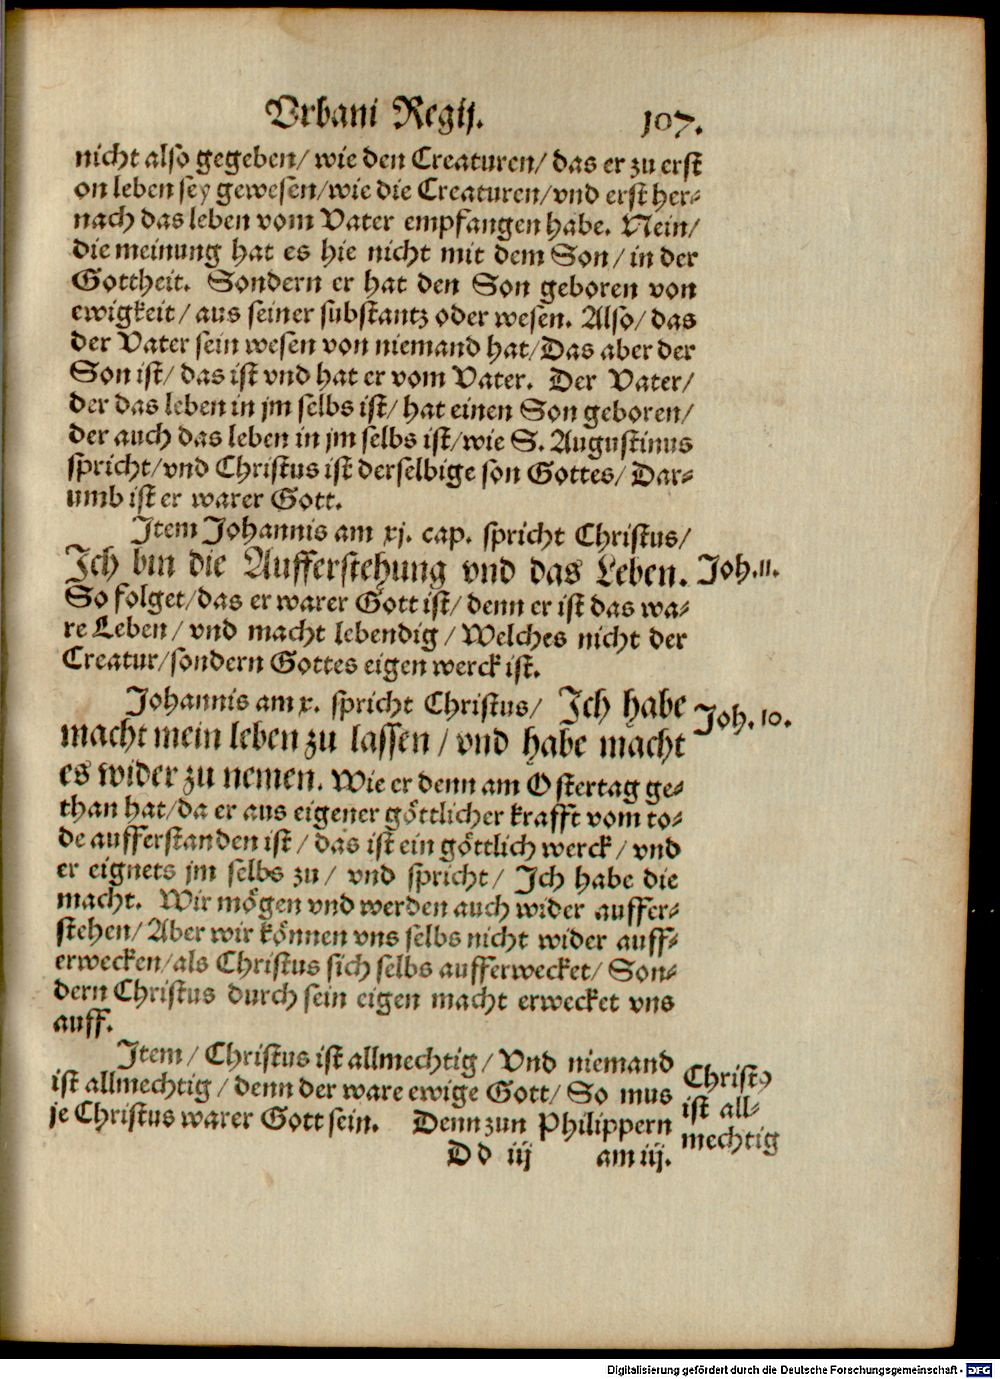 Vrbani Regij. 107.
nicht also gegeben/ wie den Creaturen/ das er zu erst
on leben sey gewesen/ wie die Creaturen/ vnd erst her-
nach das leben vom Vater empfangen habe. Nein/
die meinung hat es hie nicht mit dem Son/ in der
Gottheit. Sondern er hat den Son geboren von
ewigkeit/ aus seiner substantz oder wesen. Also/ das
der Vater sein wesen von niemand hat/ Das aber der
Son ist/ das ist vnd hat er vom Vater. Der Vater/
der das leben in jm selbs ist/ hat einen Son geboren/
der auch das leben in jm selbs ist/ wie S. Augustinus
spricht/ vnd Christus ist derselbige son Gottes/ Dar-
umb ist er warer Gott.
Item Johannis am xj. cap. spricht Christus/
Ich bin die Aufferstehung vnd das Leben. Joh. 11.
So folget/ das er warer Gott ist/ denn er ist das wa-
re Leben/ vnd macht lebendig/ Welches nicht der
Creatur/ sondern Gottes eigen werck ist.
Johannis am x. spricht Christus/ Ich habe Joh. 10.
macht mein leben zu lassen/ vnd habe macht
es wider zu nemen. Wie er denn am Ostertag ge-
than hat/ da er aus eigener göttlicher krafft vom to-
de aufferstanden ist/ das ist ein göttlich werck/ vnd
er eignets jm selbs zu/ vnd spricht/ Ich habe die
macht. Wir mögen vnd werden auch wider auffer-
stehen/ Aber wir können vns selbs nicht wider auff-
erwecken/ als Christus sich selbs aufferwecket/ Son-
dern Christus durch sein eigen macht erwecket vns
auff.
Item/ Christus ist allmechtig/ Vnd niemand
ist allmechtig/ denn der ware ewige Gott/ So mus
je Christus warer Gott sein. Denn zun Philippern
Christꝰ
ist all-
mechtig
D d iij am iij.
Digitalisierung gefördert durch die Deutsche Forschungsgemeinschaft - DFG